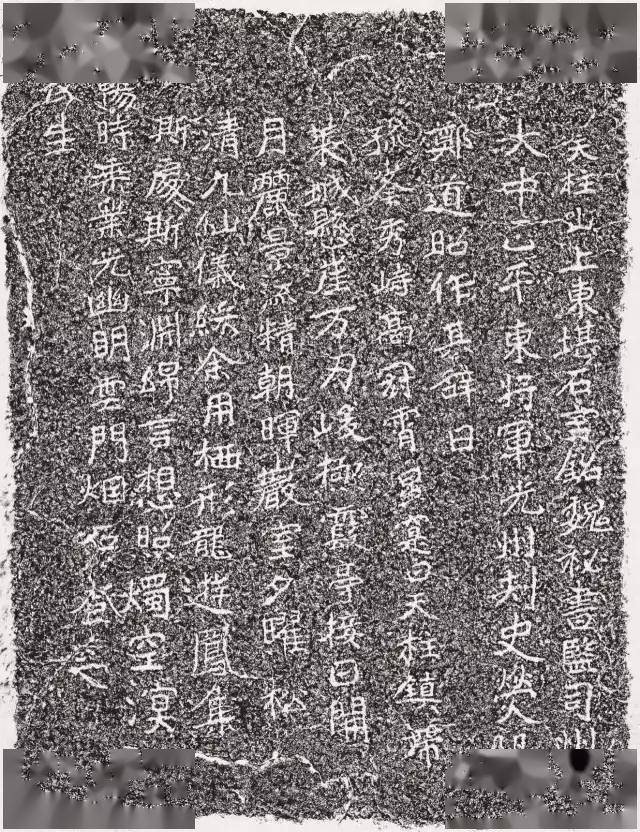 天柱山上東堪石室銘魏祕書監司州
大中正平東將軍光州刺史滎陽
鄭道昭作其辭曰
孤峯秀峙高冠霄星寔曰天柱鎮帶
萊城懸崖万刃峻極霞亭接日開
月麗景流精朝暉巖室夕曜松
清九仙儀綵余用栖形龍遊鳳集
斯處斯寧淵綿言想照燭空溟
暢時乘業光幽明雲門烟石登之
長生